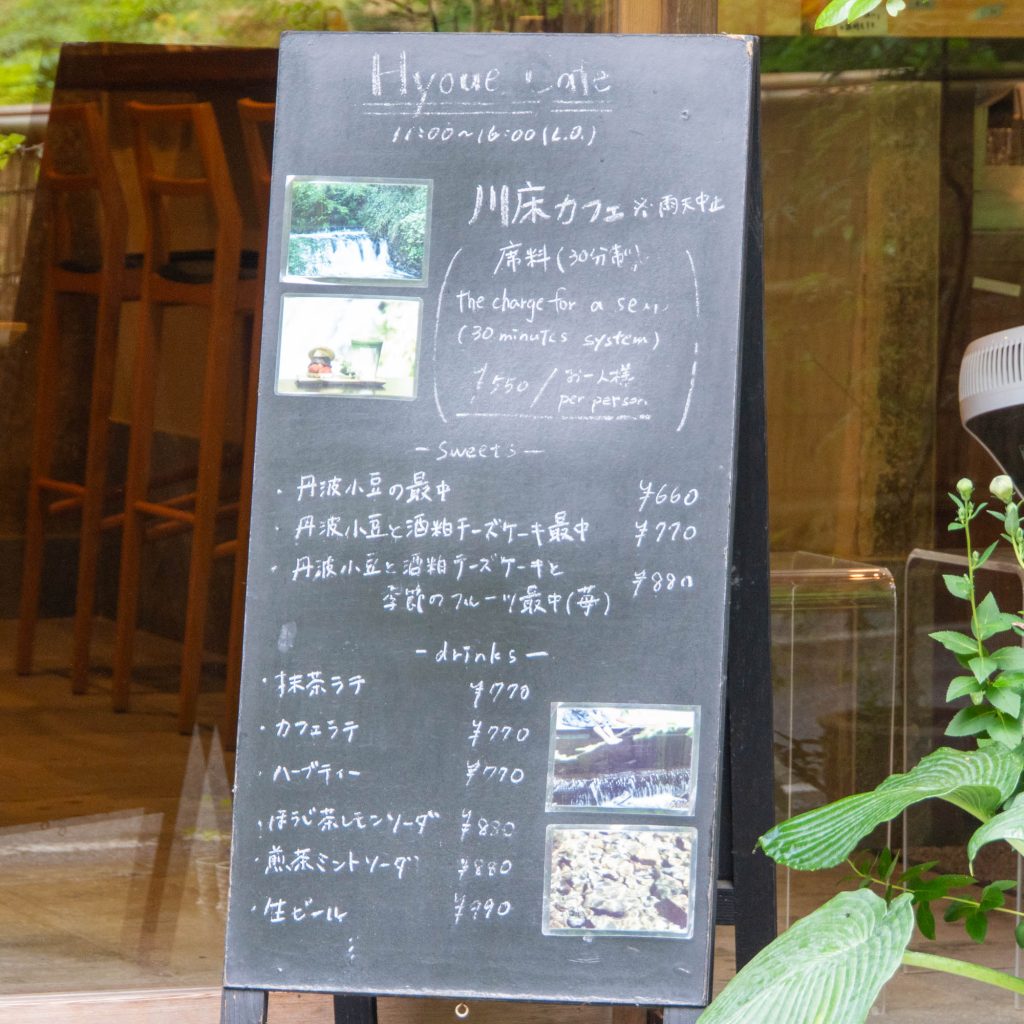 Hyoue Cafe
11:00~16:00(L.O.)
川床カフェ ※雨天中止
席料(30分制)
the charge for a
(30 minutes system)
¥550/お一人様
per person
-sweets-
・丹波小豆の最中 ¥660
・丹波小豆と酒粕チーズケーキ最中 ¥770
・丹波小豆と酒粕チーズケーキと
季節のフルーツ最中(苺) ¥880
-drinks-
・抹茶ラテ ¥770
・カフェラテ ¥770
・ハーブティー ¥770
・ほうじ茶レモンソーダ ¥880
・煎茶ミントソーダ ¥880
・生ビール ¥990